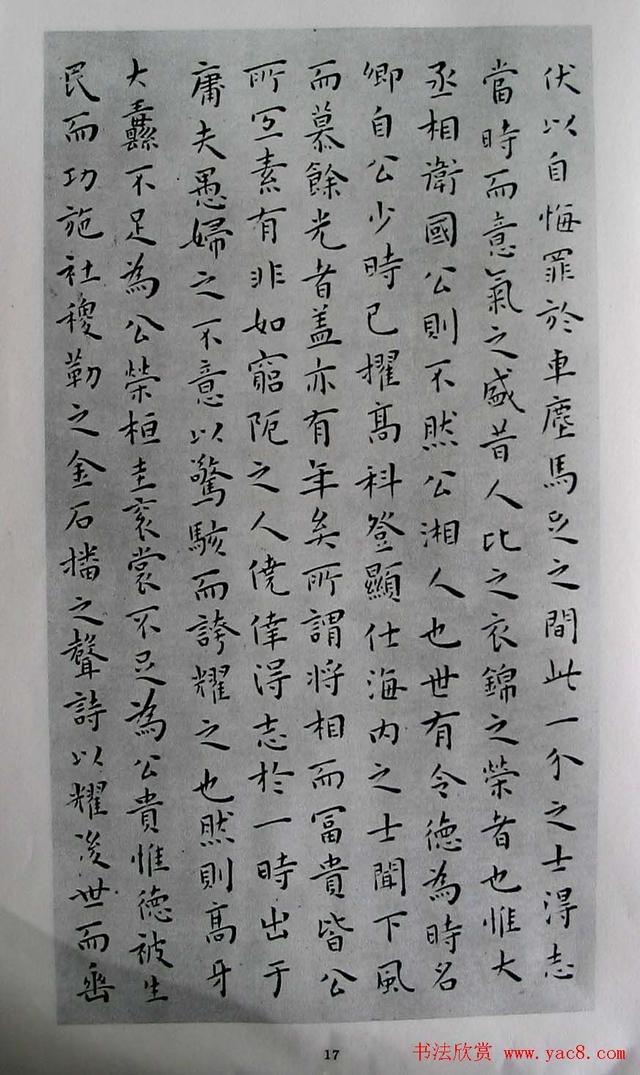 伏以自悔罪於車塵馬足之間此一介之士得志
當時而意氣之盛昔人比之衣錦之榮者也惟大
丞相衛國公則不然公湘人也世有令德為時名
卿自公少時已擢高科登顯仕海内之士聞下風
而慕餘光者盖亦有年矣所謂将相而冨貴皆公
所宜素有非如窮阨之人僥倖得志於一時出于
庸夫愚婦之不意以驚駭而誇耀之也然則高牙
大纛不足為公榮桓圭衮裳不足為公貴惟德被生
民而功施社稷勒之金石播之聲詩以耀後世而垂
17
书法欣赏 www.yac8.com